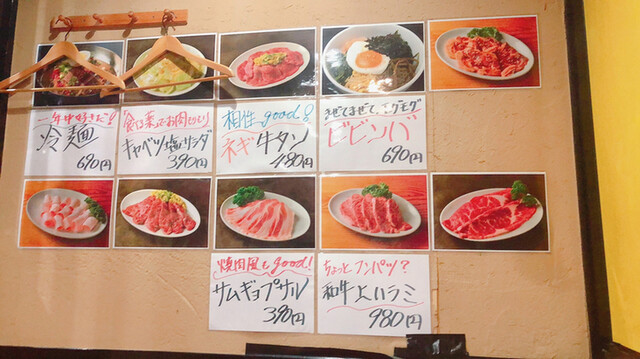 一年中好きだ!
冷麺
690円
食べ楽しでお肉じっとり
キャベツ塩サンダ
390円
相性good!
ネギ牛タン
480円
まぜてまぜて
ビビンバ
690円
焼肉屋もgood!
サムギョプサル
390円
ちょっとフンパツ?
和牛上ハラミ
980円